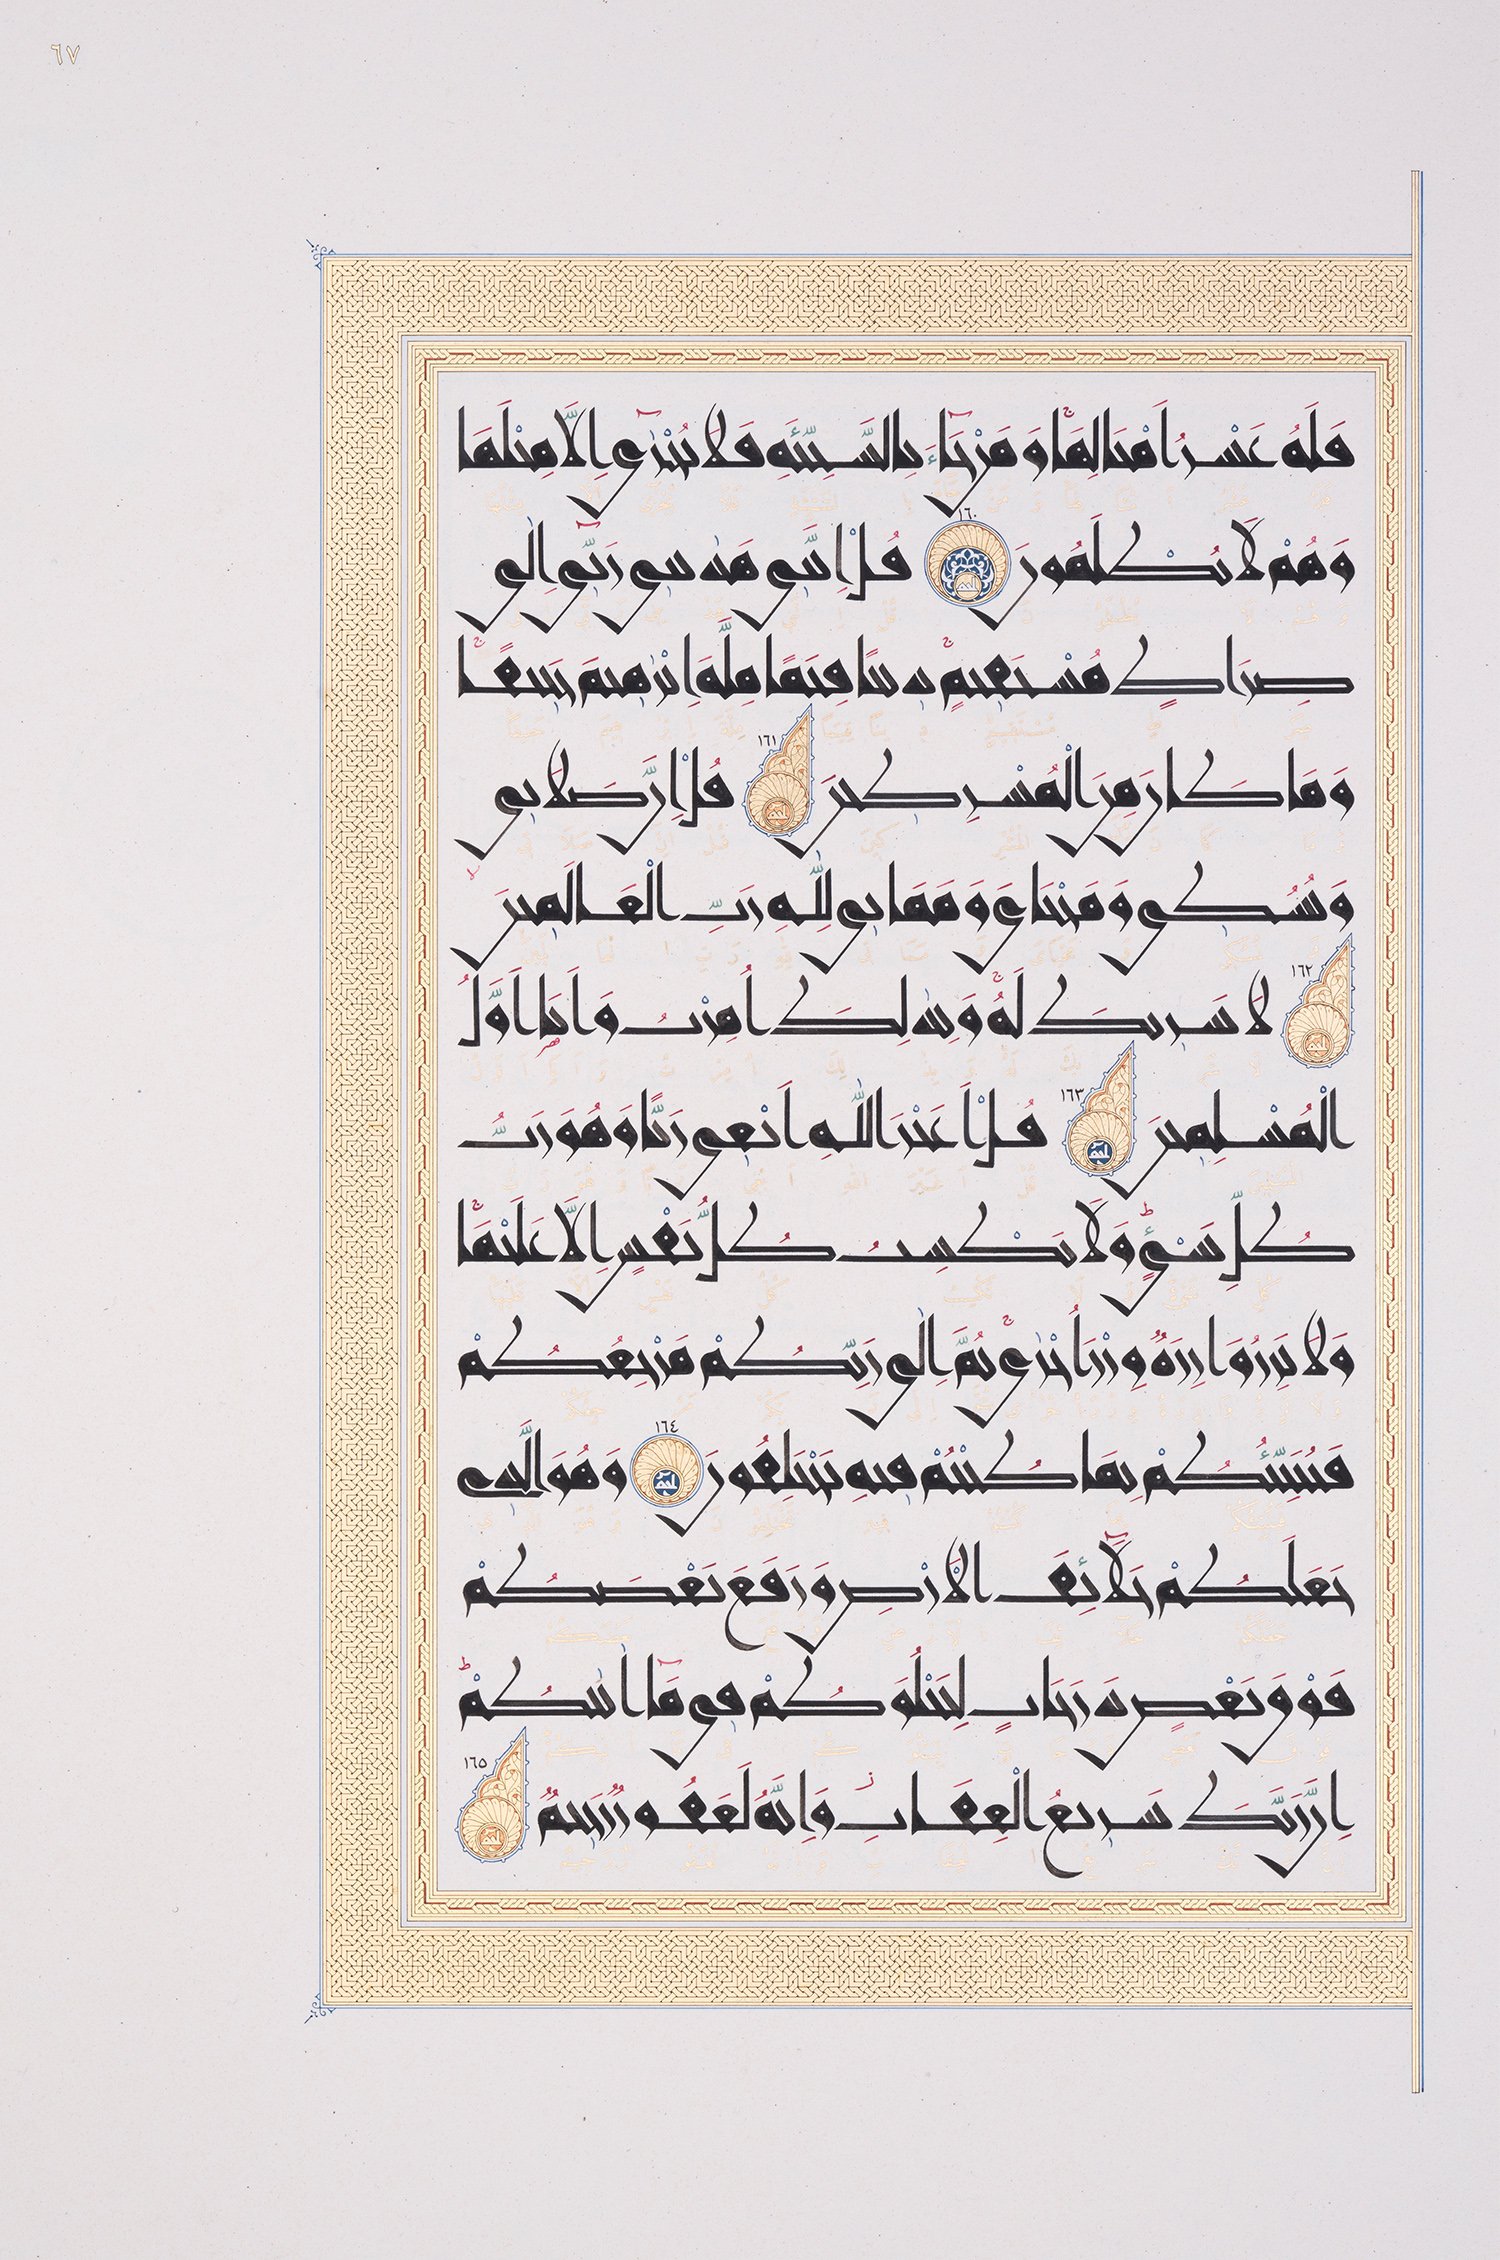 ٦٧
فَلَهُ عَشْرُ اَمْثَالِهَاۚ وَمَنْ جَٓاءَ بِالسَّيِّئَةِ فَلَا يُجْزٰٓى اِلَّا مِثْلَهَا
وَهُمْ لَا يُظْلَمُونَ ١٦٠ قُلْ اِنَّنٖى هَدٰينٖى رَبّٖٓى اِلٰى
صِرَاطٍ مُسْتَقٖيمٍۚ دٖينًا قِيَمًا مِلَّةَ اِبْرٰهٖيمَ حَنٖيفًاۚ
وَمَا كَانَ مِنَ الْمُشْرِكٖينَ ١٦١ قُلْ اِنَّ صَلَاتٖى
وَنُسُكٖى وَمَحْيَاىَ وَمَمَاتٖى لِلّٰهِ رَبِّ الْعَالَمٖينَ
١٦٢ لَا شَرٖيكَ لَهُۚ وَبِذٰلِكَ اُمِرْتُ وَاَنَا اَوَّلُ
الْمُسْلِمٖينَ ١٦٣ قُلْ اَغَيْرَ اللّٰهِ اَبْغٖى رَبًّا وَهُوَ رَبُّ
كُلِّ شَىْءٍۜ وَلَا تَكْسِبُ كُلُّ نَفْسٍ اِلَّا عَلَيْهَاۚ
وَلَا تَزِرُ وَازِرَةٌ وِزْرَ اُخْرٰىۚ ثُمَّ اِلٰى رَبِّكُمْ مَرْجِعُكُمْ
فَيُنَبِّئُكُمْ بِمَا كُنْتُمْ فٖيهِ تَخْتَلِفُونَ ١٦٤ وَهُوَ الَّذٖى
جَعَلَكُمْ خَلَٓائِفَ الْاَرْضِ وَرَفَعَ بَعْضَكُمْ
فَوْقَ بَعْضٍ دَرَجَاتٍ لِيَبْلُوَكُمْ فٖى مَٓا اٰتٰيكُمْۜ
اِنَّ رَبَّكَ سَرٖيعُ الْعِقَابِ وَاِنَّهُ لَغَفُورٌ رَحٖيمٌ ١٦٥